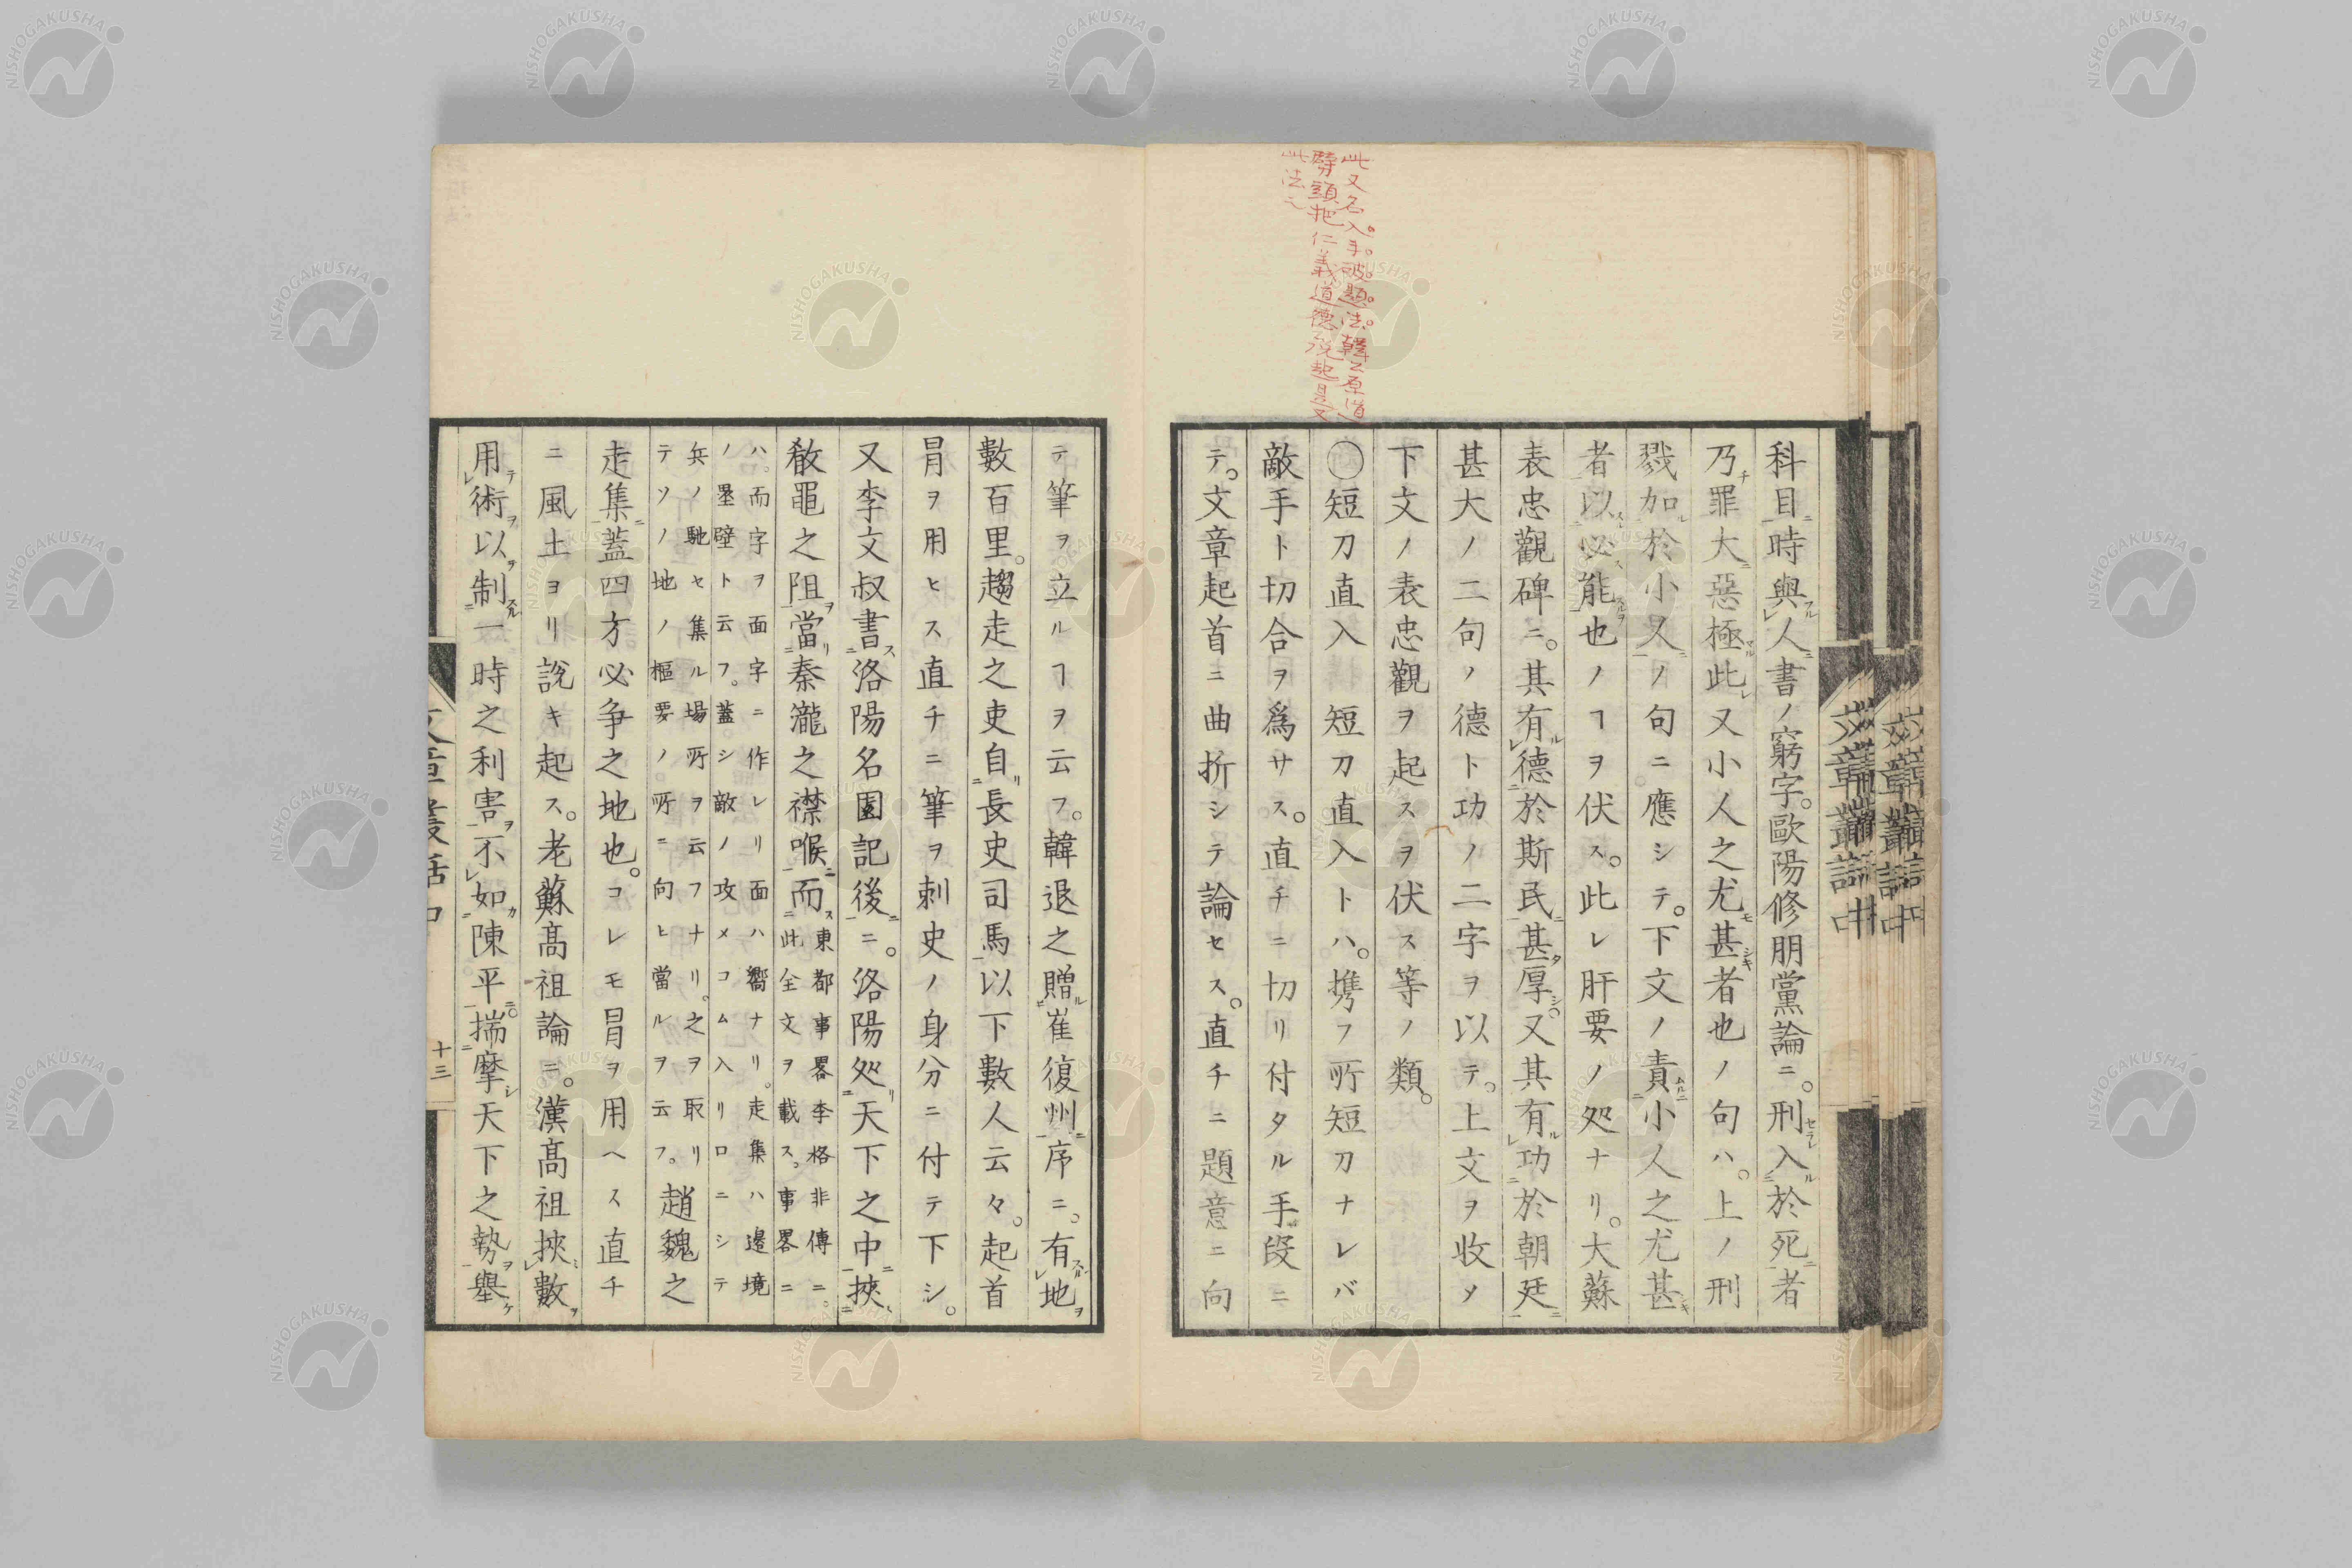 此又名入手破題法韓公原道
劈頭把仁義道德說起是又
此法之
科目時與人書ノ窮字。歐陽修朋黨論ニ。刑入於死者
乃罪大惡極此又小人之尤甚者也ノ句ハ。上ノ刑
戮加於小人ノ句ニ應シテ。下文ノ責小人之尤甚
者以必能也ノヿヲ伏ス。此レ肝要ノ処ナリ。大蘇
表忠觀碑ニ。其有德於斯民甚厚。又其有功於朝廷
甚大ノ二句ノ德ト功ノ二字ヲ以テ。上文ヲ收メ
下文ノ表忠觀ヲ起スヲ伏ス等ノ類。
〇短刀直入 短刀直入トハ。携フ所短刀ナレバ
敵手ト切合ヲ爲サス。直チニ切リ付タル手段ニ
テ。文章起首ニ曲折シテ論セス。直チニ題意ニ向
テ筆ヲ立ルヿヲ云フ。韓退之贈崔復州序ニ。有地
數百里。趨走之吏自長史司馬以下數人云々。起首
冐ヲ用ヒス直チニ筆ヲ刺史ノ身分ニ付テ下シ。
又李文叔書洛陽名園記後ニ。洛陽処天下之中挾
殽黽之阻當秦瀧之襟喉而
東都事畧李格非傳ニ。
此全文ヲ載ス。事畧ニ
ハ。而字ヲ面字ニ作レリ面ハ嚮ナリ。走集ハ邊境
ノ塁壁ト云フ。蓋シ敵ノ攻メコム入リロニシテ
兵ノ馳セ集ル場所ヲ云フナリ。之ヲ取リ
テソノ地ノ樞要ノ所ニ向ヒ當ルヲ云フ。
趙魏之
走集蓋四方必争之地也。コレモ冐ヲ用ヘス直チ
ニ風土ヨリ說キ起ス。老蘇髙祖論ニ。漢髙祖挾數
用術以制一時之利害不如陳平。揣摩天下之勢舉
文章叢話中
十三